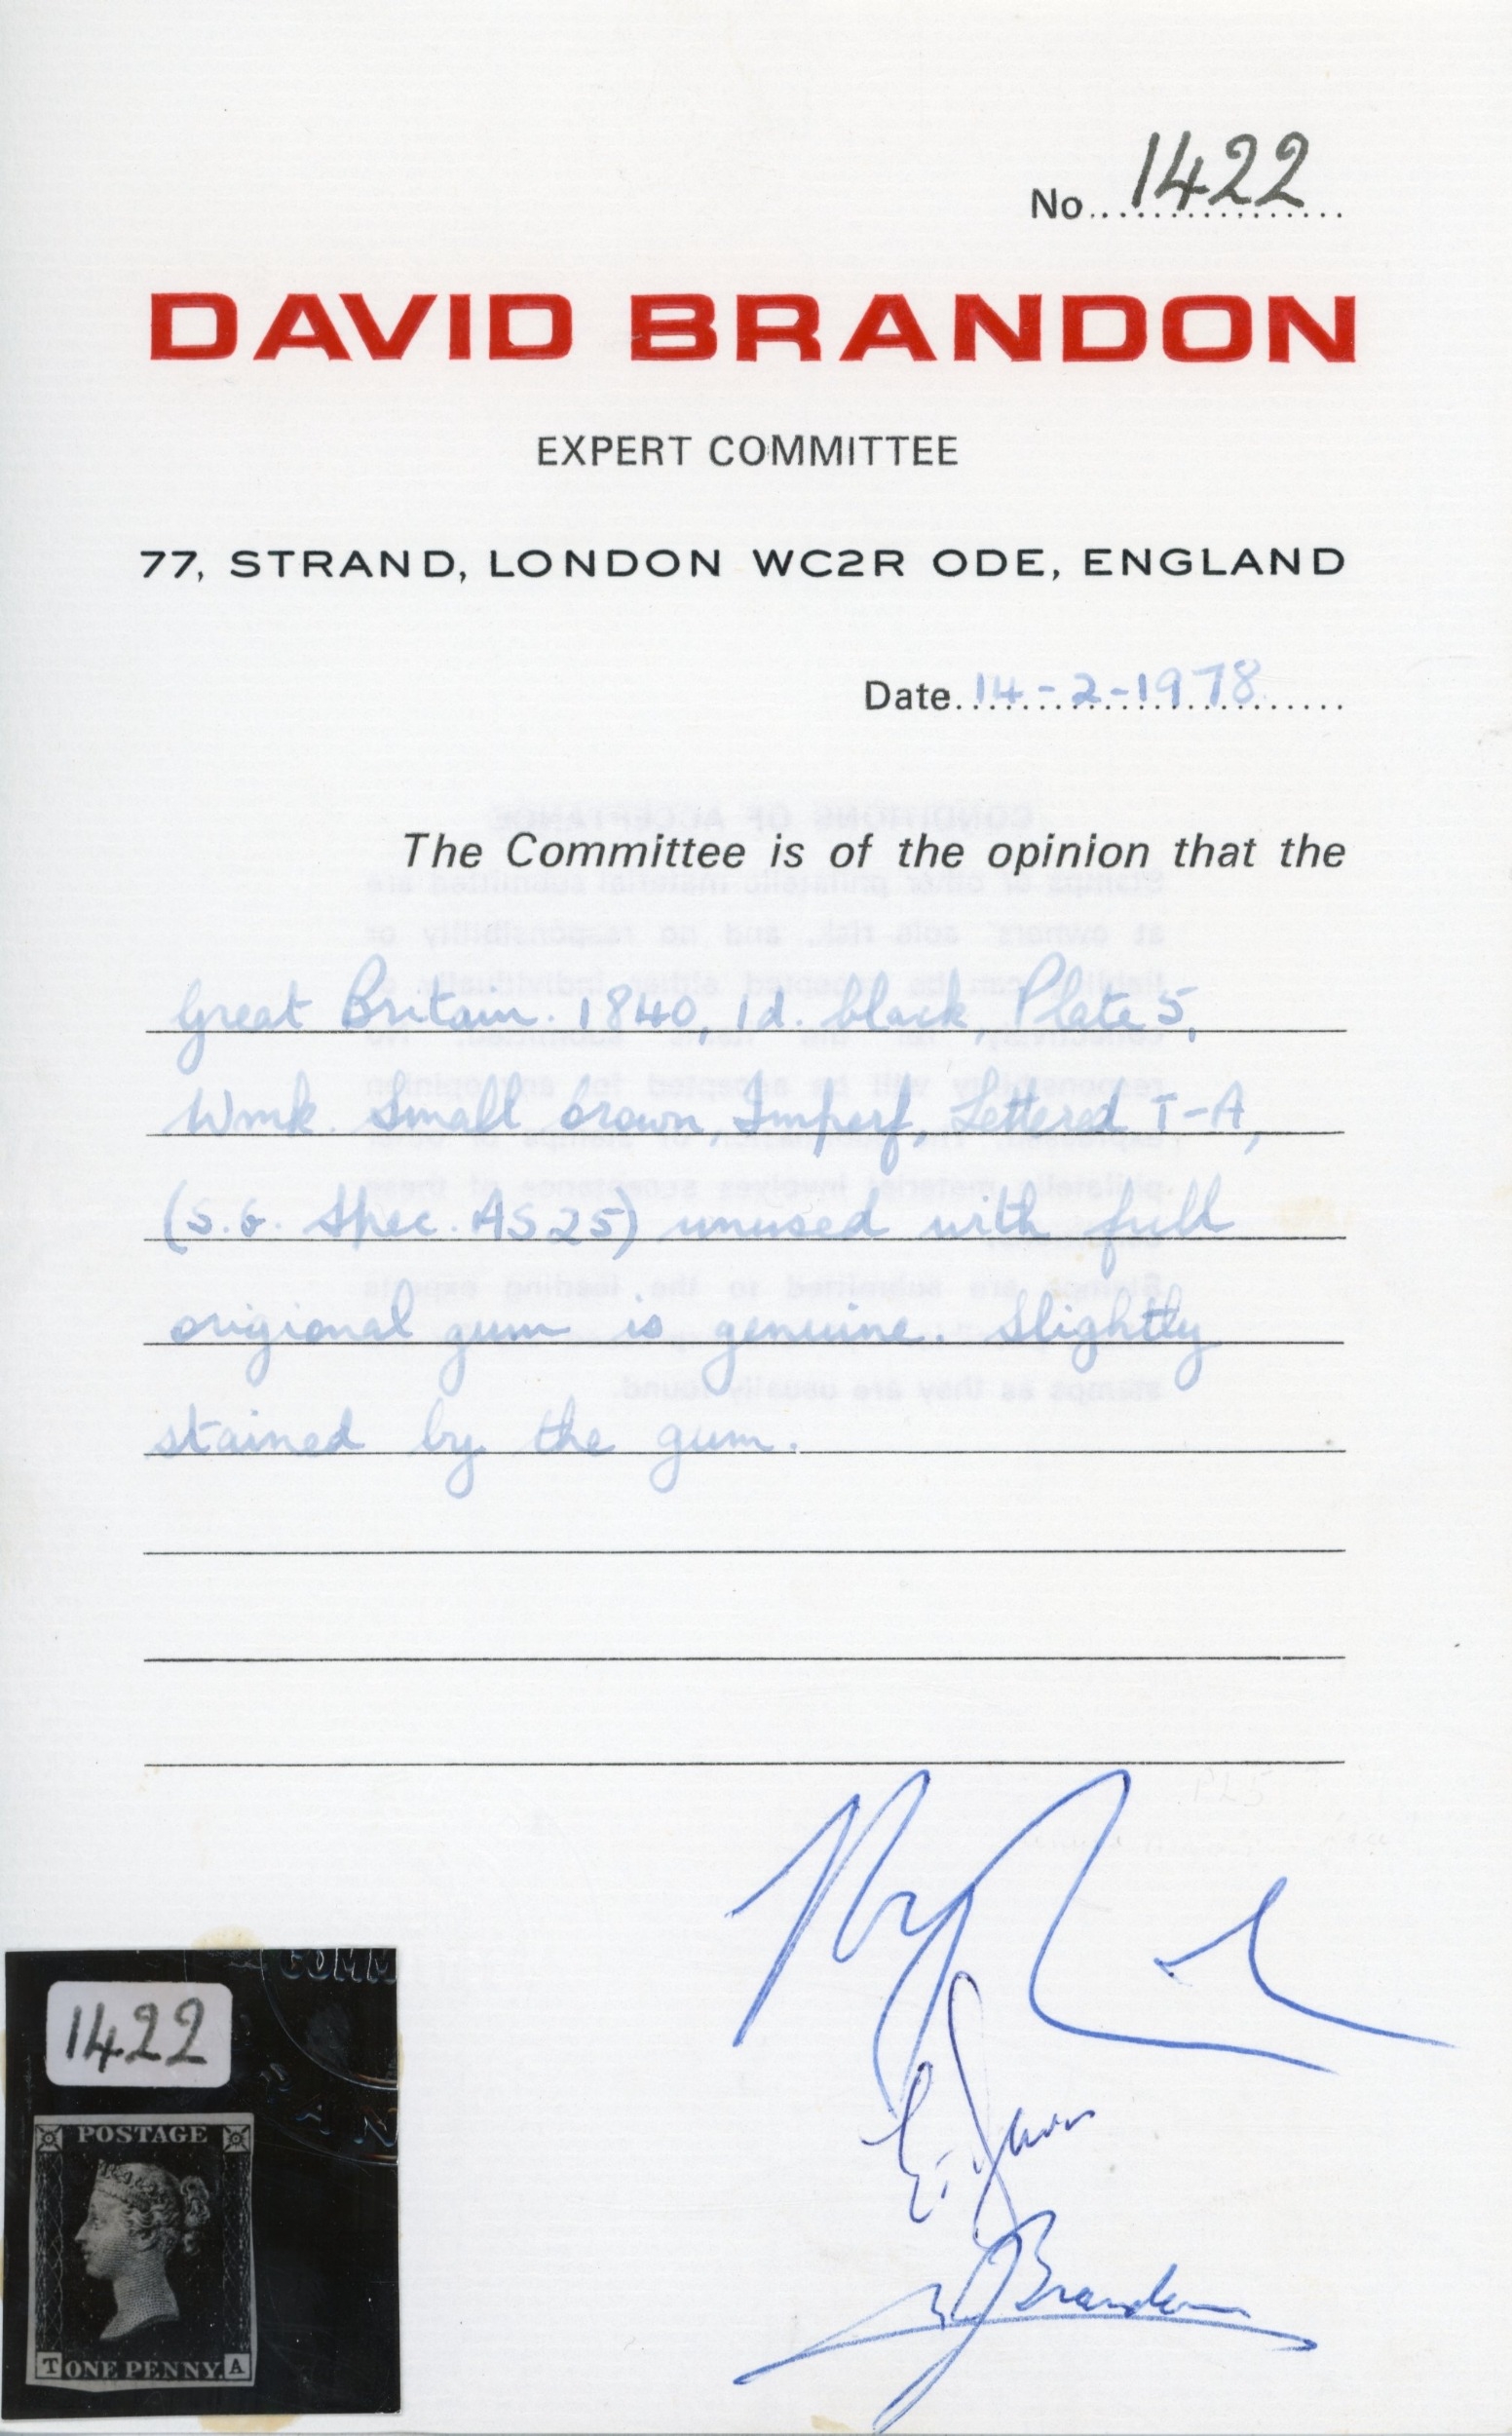 No 1422
DAVID BRANDON
EXPERT COMMITTEE
77, STRAND, LONDON WC2R ODE, ENGLAND
Date 14-2-1978
The Committee is of the opinion that the
Great Britain. 1840, 1d. black, Plate 5,
Wmk. Small Crown, Imperf, Lettered T-A,
(S.G. Spec. AS25) unused with full
origional gum is genuine. Slightly
stained by the gum.
1422
POSTAGE
T ONE PENNY. A
Brandon